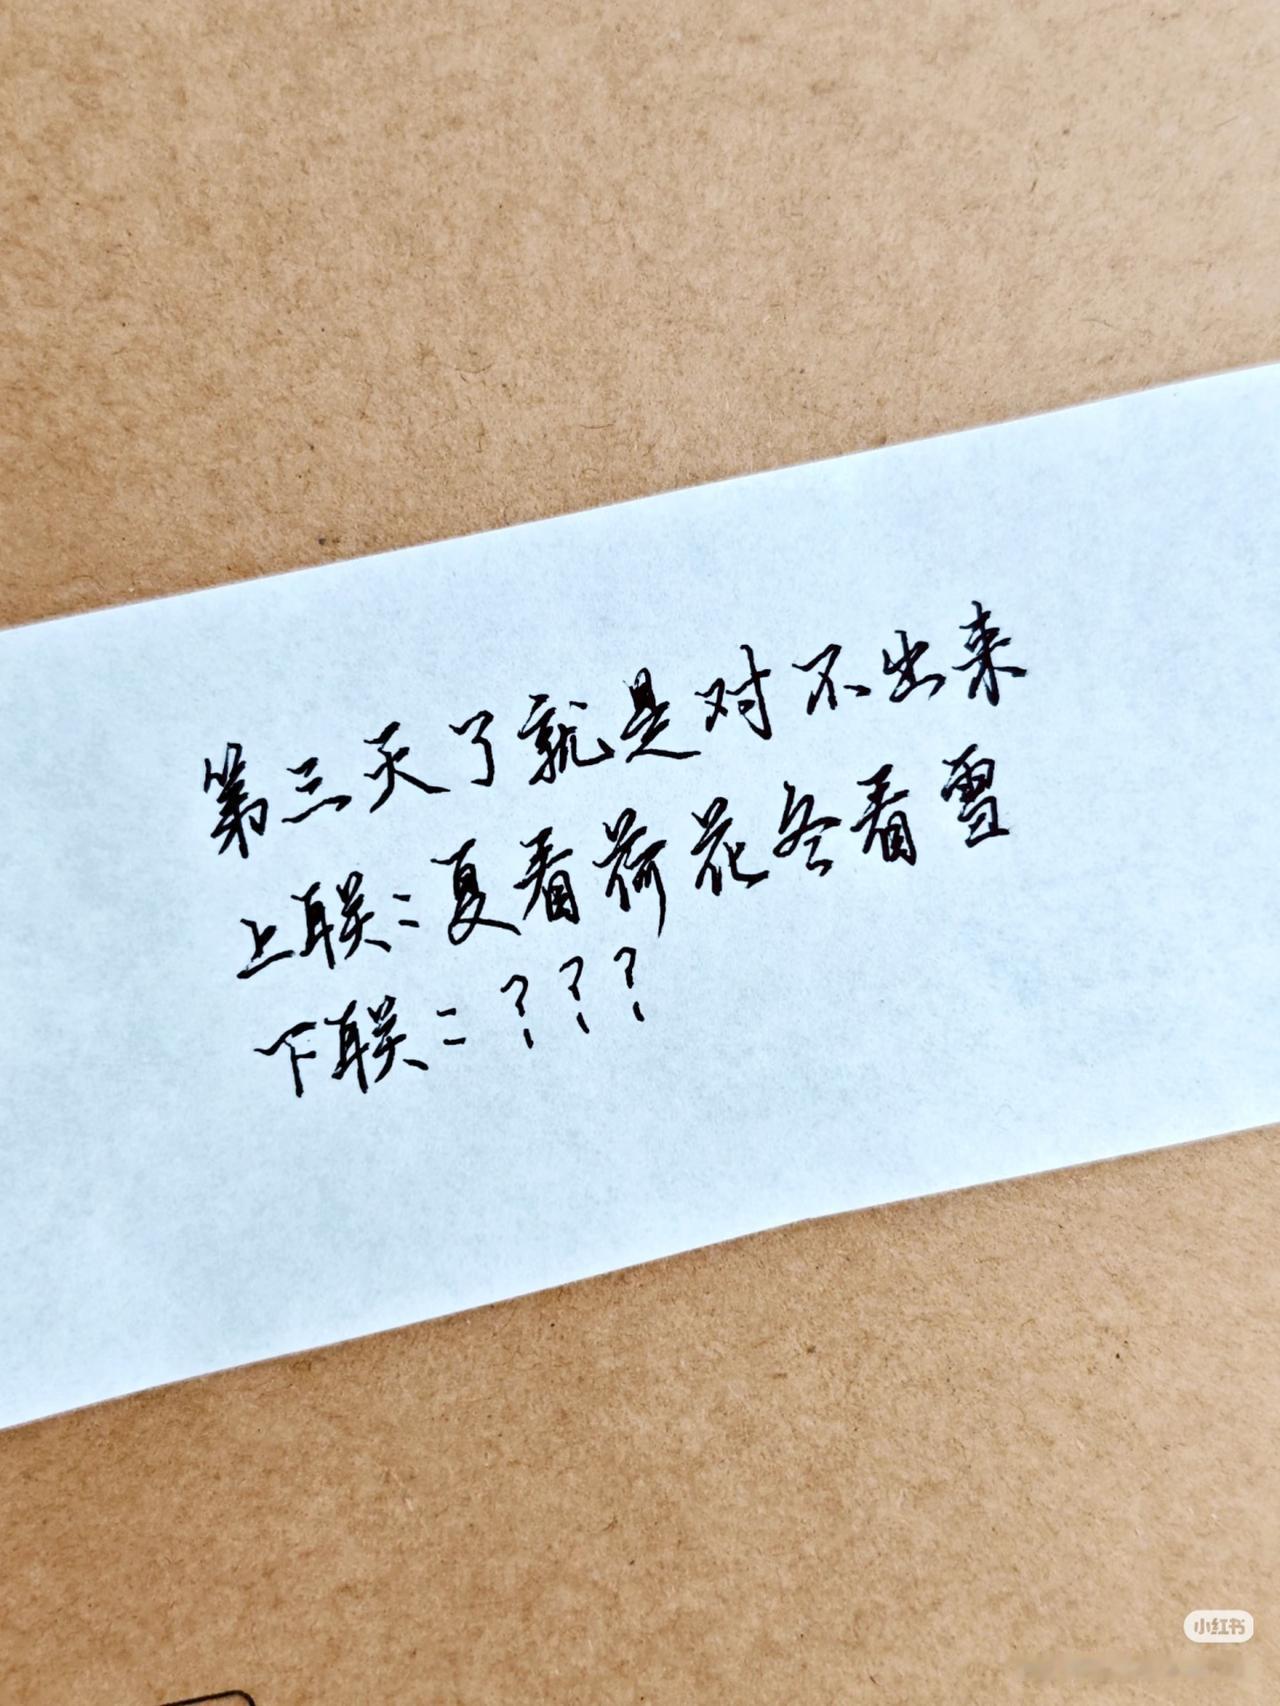 第三天了就是对不出来
上联:夏看荷花冬看雪
下联:???
小红书